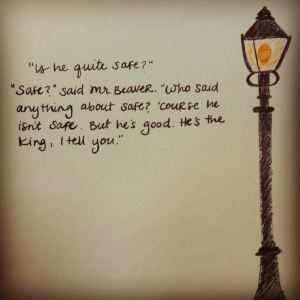 "Is he quite safe?"
"Safe?" said Mr. Beaver. "Who said
anything about safe? 'course he
isn't safe. But he's good. He's the
King, I tell you."